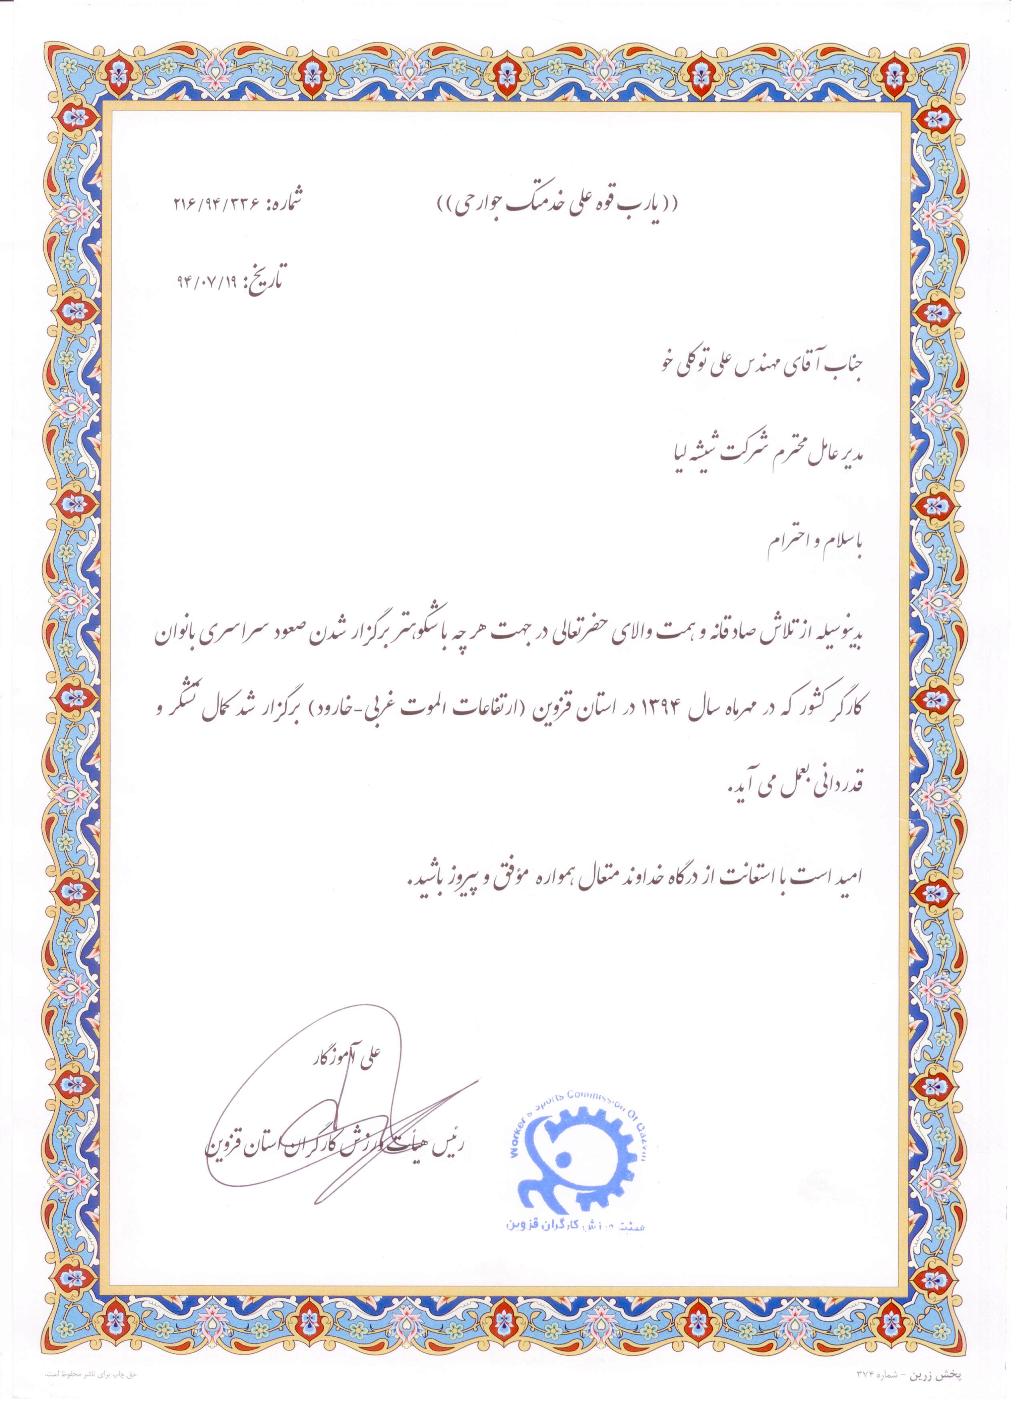 (( یارب قوه علی خدمتک جوارحی))
شماره: ۲۱۶/۹۴/۳۳۶
تاریخ: ۹۴/۰۷/۱۹
جناب آقای مهندس علی توکلی خو
مدیر عامل محترم شرکت شیشه لیا
باسلام و احترام
بدینوسیله از تلاش صادقانه و همت والای حضرتعالی در جهت هر چه باشکوهتر برگزار شدن صعود سراسری بانوان
کارگر کشور که در مهرماه سال ۱۳۹۴ در استان قزوین (ارتفاعات الموت غربی-خارود) برگزار شد کمال تشکر و
قدردانی بعمل می آید.
امید است با استعانت از درگاه خداوند متعال همواره موفق و پیروز باشید.
علی آموزگار
رئیس هیأت ورزش کارگران استان قزوین
Worker's Sports Commission Of Qazvin
هیئت ورزش کارگران قزوین
پخش زرین - شماره ۳۷۴
حق چاپ برای ناشر محفوظ است.